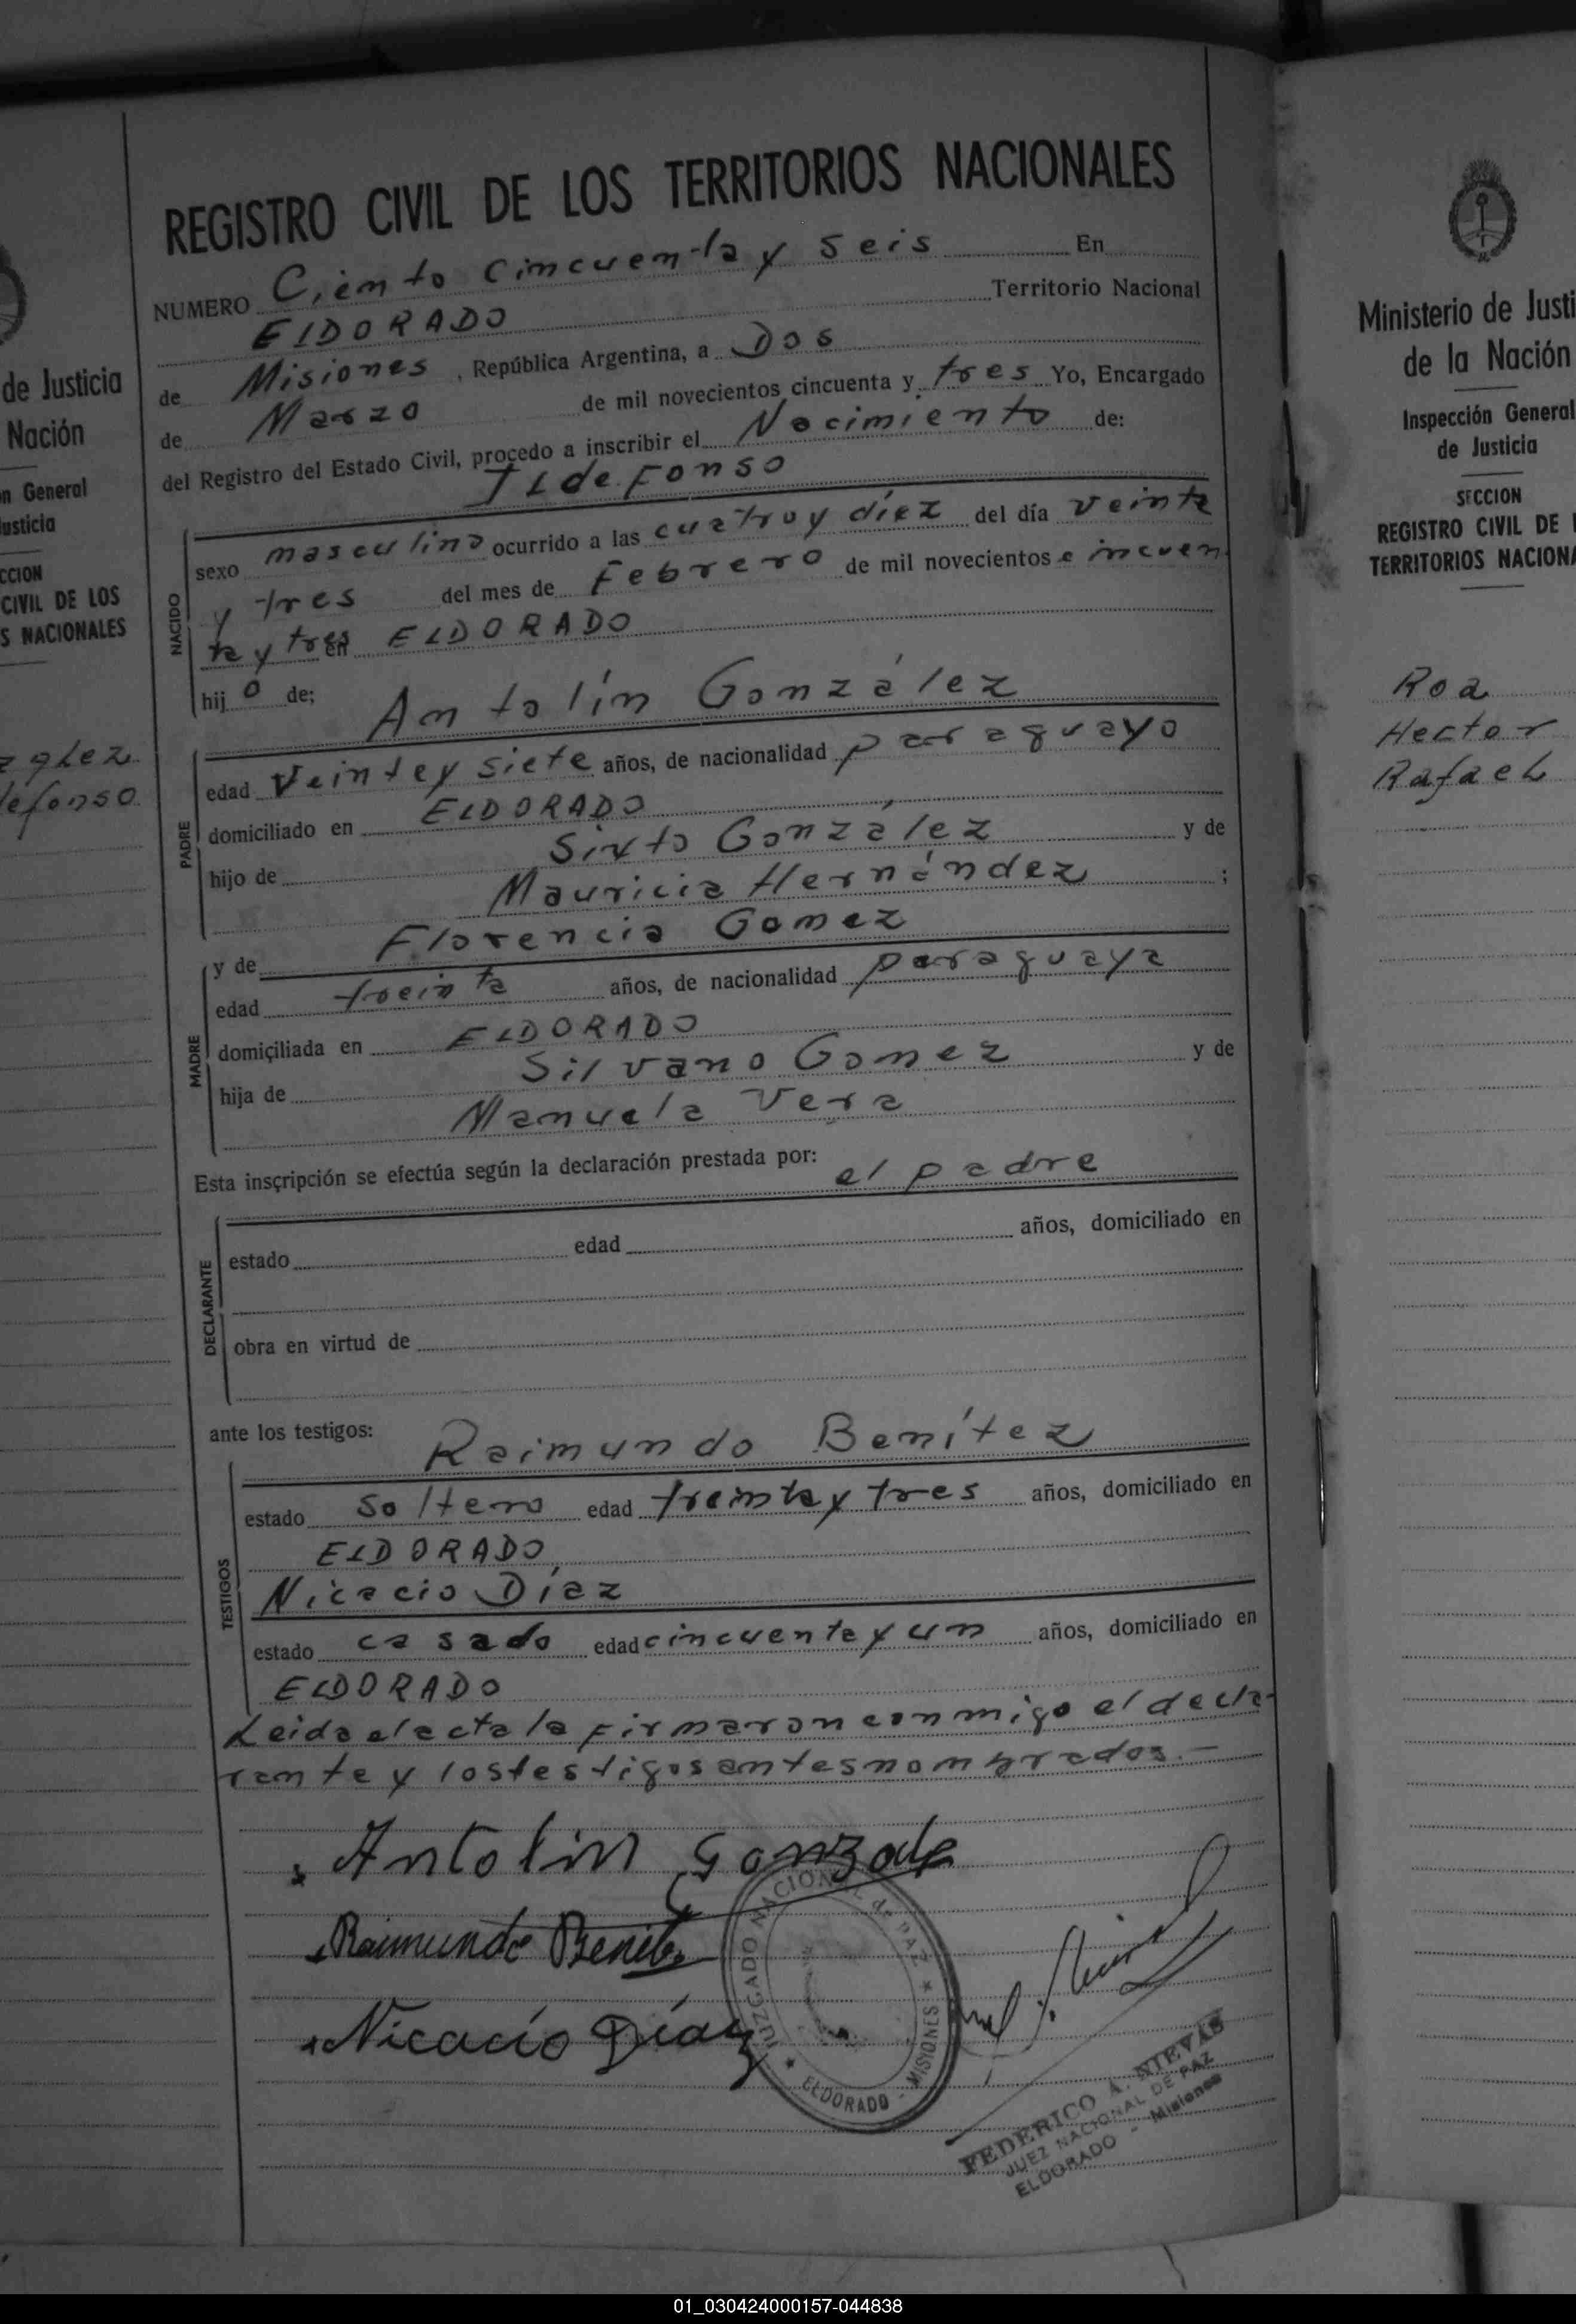 REGISTRO CIVIL DE LOS TERRITORIOS NACIONALES
NUMERO Ciento Cincuenta y Seis En
ELDORADO Territorio Nacional
de Misiones, República Argentina, a Dos
de Marzo de mil novecientos cincuenta y tres Yo, Encargado
del Registro del Estado Civil, procedo a inscribir el Nacimiento de:
ILdeFonso
NACIDO
sexo masculino ocurrido a las cuatro y díez del día veinte
y tres del mes de Febrero de mil novecientos cincuen
ta y tres en ELDORADO
hijo de; Antolín González
PADRE
edad Veinte y siete años, de nacionalidad paraguayo
domiciliado en ELDORADO
hijo de Sixto González y de
Mauricia Hernández ;
MADRE
y de Florencia Gomez
edad treinta años, de nacionalidad paraguaya
domiçiliada en ELDORADO
hija de Silvano Gomez y de
Manuela Vera
Esta insçripción se efectúa según la declaración prestada por: el padre
DECLARANTE
estado edad años, domiciliado en
obra en virtud de
ante los testigos: Raimundo Benítez
TESTIGOS
estado soltero edad treinta y tres años, domiciliado en
ELDORADO
Nicacio Díaz
estado casado edad cincuenta y un años, domiciliado en
ELDORADO
Leida el acta la Firmaron conmigo el decla-
rante y los testigos antes nombrados.-
Antolin Gonzalez
Raimundo Benitez
Nicacío Díaz
JUZGADO NACIONAL de PAZ
ELDORADO - MISIONES
FEDERICO A. NIEVAS
JUEZ NACIONAL DE PAZ
ELDORADO - Misiones
de Justicia
Nación
n General
usticia
CCION
CIVIL DE LOS
S NACIONALES
efonso
Ministerio de Justi
de la Nación
Inspección General
de Justicia
SECCION
REGISTRO CIVIL DE
TERRITORIOS NACIONA
Roa
Hector
RafaeL
01_030424000157-044838